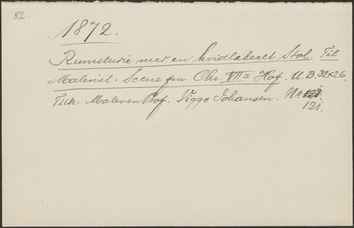 82.
1872.
Rumstudie med en hvidlakeret Stol. Til
Maleriet: Scene fra Chr. VII's Hof. U. B. 32×26.
Tilh. Maleren Prof. Viggo Johansen. Nr.
121.